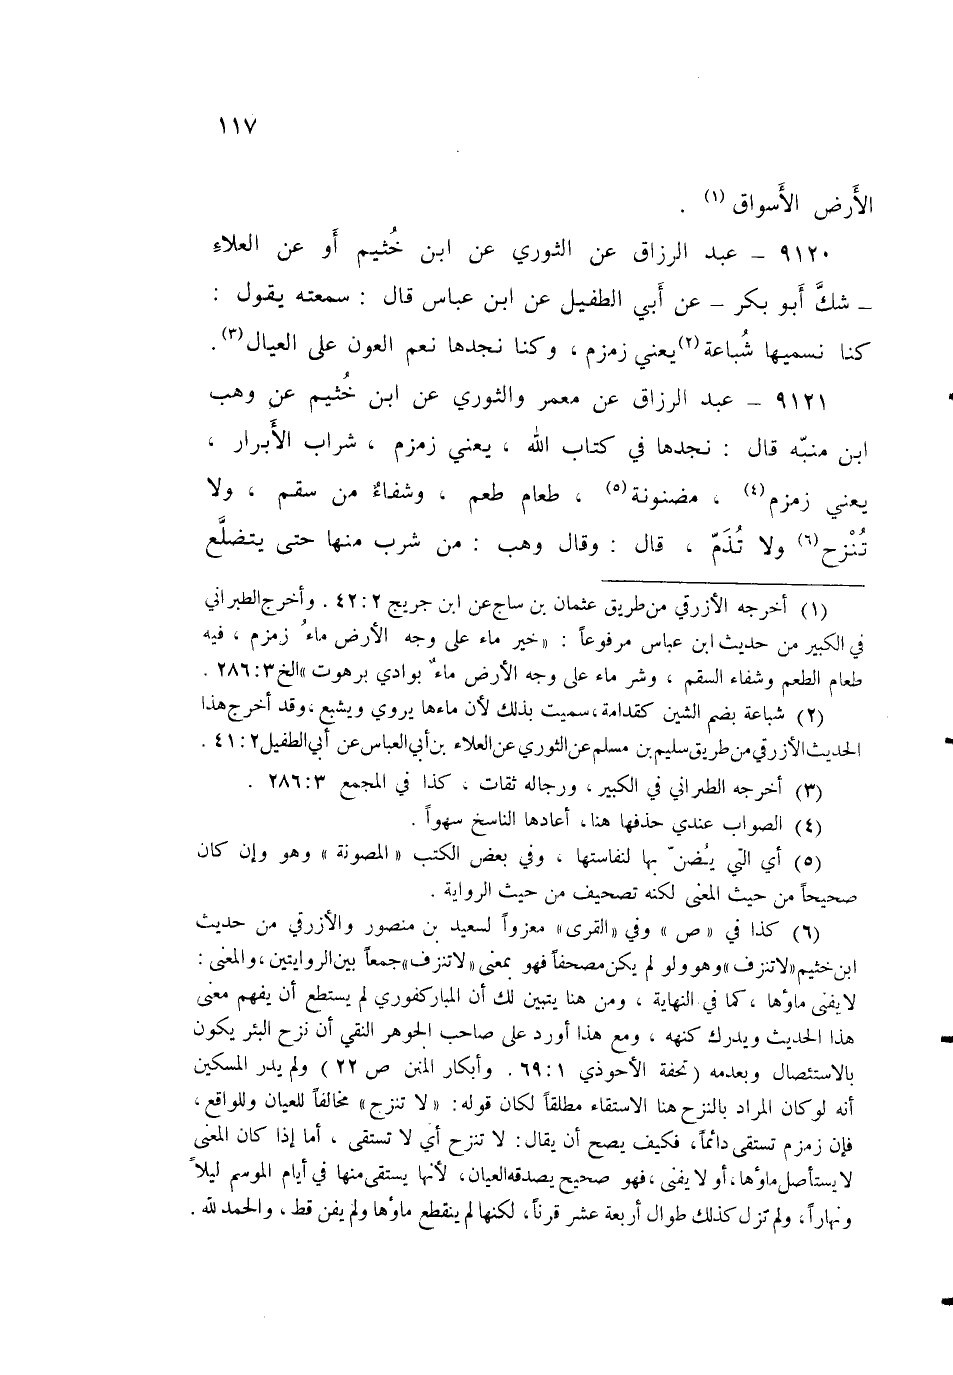 ١١٧
الأَرض الأَسواق (١) .
٩١٢٠ ـ عبد الرزاق عن الثوري عن ابن خُثيم أَو عن العلاء
ـ شكَّ أَبو بكر ـ عن أَبي الطفيل عن ابن عباس قال : سمعته يقول :
كنا نسميها شُباعة (٢) يعني زمزم ، وكنا نجدها نعم العون على العيال (٣) .
٩١٢١ ـ عبد الرزاق عن معمر والثوري عن ابن خُثيم عن وهب
ابن منبّه قال : نجدها في كتاب الله ، يعني زمزم ، شراب الأَبرار ،
يعني زمزم (٤) ، مضنونة (٥) ، طعام طعم ، وشفاءٌ من سقم ، ولا
تُنْزح (٦) ولا تُذَمّ ، قال : وقال وهب : من شرب منها حتى يتضلَّع
(١) أخرجه الأزرقي من طريق عثمان بن ساج عن ابن جريج ٢ : ٤٢ . وأخرج الطبراني
في الكبير من حديث ابن عباس مرفوعاً : « خير ماء على وجه الأرض ماءُ زمزم ، فيه
طعام الطعم وشفاء السقم ، وشر ماء على وجه الأرض ماءٌ بوادي برهوت » الخ ٣ : ٢٨٦ .
(٢) شباعة بضم الشين كقدامة ، سميت بذلك لأن ماءها يروي ويشبع ، وقد أخرج هذا
الحديث الأزرقي من طريق سليم بن مسلم عن الثوري عن العلاء بن أبي العباس عن أبي الطفيل ٢ : ٤١ .
(٣) أخرجه الطبراني في الكبير ، ورجاله ثقات ، كذا في المجمع ٣ : ٢٨٦ .
(٤) الصواب عندي حذفها هنا ، أعادها الناسخ سهواً .
(٥) أي التي يُضنّ بها لنفاستها ، وفي بعض الكتب « المصونة » وهو وإن كان
صحيحاً من حيث المعنى لكنه تصحيف من حيث الرواية .
(٦) كذا في « ص » وفي « القرى » معزواً لسعيد بن منصور والأزرقي من حديث
ابن خثيم « لا تنزف » وهو ولو لم يكن مصحفاً فهو بمعنى « لا تنزف » جمعاً بين الروايتين ، والمعنى :
لا يفنى ماؤها ، كما في النهاية ، ومن هنا يتبين لك أن المباركفوري لم يستطع أن يفهم معنى
هذا الحديث ويدرك كنهه ، ومع هذا أورد على صاحب الجوهر النقي أن نزح البئر يكون
بالاستئصال وبعدمه ( تحفة الأحوذي ١ : ٦٩ . وأبكار المنن ص ٢٢ ) ولم يدر المسكين
أنه لو كان المراد بالنزح هنا الاستقاء مطلقاً لكان قوله : « لا تنزح » مخالفاً للعيان وللواقع ،
فإن زمزم تستقى دائماً ، فكيف يصح أن يقال : لا تنزح أي لا تستقى ، أما إذا كان المعنى
لا يستأصل ماؤها ، أو لا يفنى ، فهو صحيح يصدقه العيان ، لأنها يستقى منها في أيام الموسم ليلاً
ونهاراً ، ولم تزل كذلك طوال أربعة عشر قرناً ، لكنها لم ينقطع ماؤها ولم يفن قط ، والحمد لله .